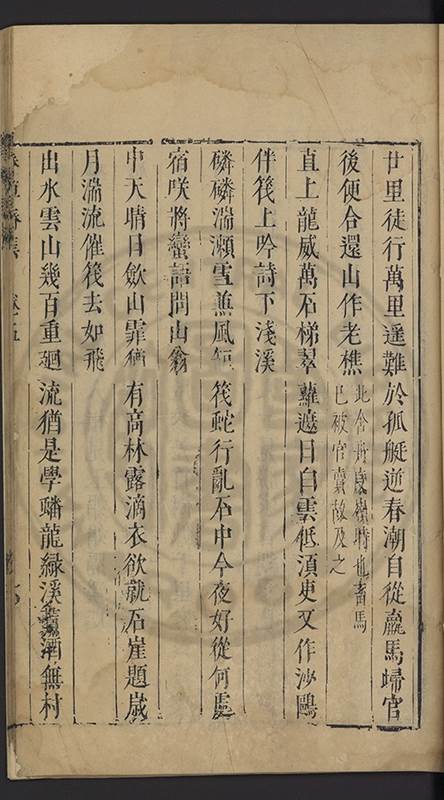 廿里徒行萬里遥難於孤艇逆春潮自從羸馬歸官
後便合還山作老樵此舍舟歲嶺時也畜馬
已被官賣故及之
直上龍威萬石梯翠蘿遮日白雲低須臾又作沙鷗
伴筏上吟詩下淺溪
磷磷湍瀬雪兼風短筏蛇行亂石中今夜好從何處
宿咲將蠻語問山翁
中天晴日歛山霏猶有高林露滴衣欲就石崖題歲
月湍流催筏去如飛
出水雲山幾百重廻流猶是學蟠龍緑溪酒無村